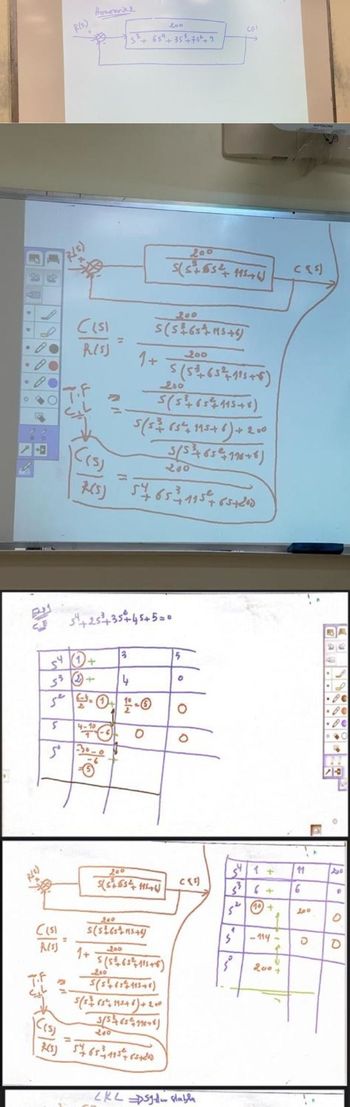 R(s)
200
s⁵ + 6s⁴ + 3s³ + 7s² + 9
C(s)
R(s)
200
s(s³+6s²+11s+6)
C(s)
C(s)
R(s)
=
200
s(s³+6s²+11s+6)
1 +
200
s(s³+6s²+11s+6)
T.F
C.L
=
200
s(s³+6s²+11s+6)
s(s³+6s²+11s+6)+200
s(s³+6s²+11s+6)
C(s)
R(s)
=
200
s⁴+6s³+11s²+6s+200
s⁴+2s³+3s²+4s+5=0
s⁴ 1 + 3 5
s³ 2 + 4 0
s² 6-4/2 = 1 + 10/2 = 5 0
s 4-10/1 = -6 - 0 0
s⁰ -30-0/-6 = 5 +
R(s)
200
s(s³+6s²+11s+6)
C(s)
C(s)
R(s)
=
200
s(s³+6s²+11s+6)
1 +
200
s(s³+6s²+11s+6)
T.F
C.L
=
200
s(s³+6s²+11s+6)
s(s³+6s²+11s+6)+200
s(s³+6s²+11s+6)
C(s)
R(s)
=
200
s⁴+6s³+11s²+6s+200
s⁴ 1 + 11 200
s³ 6 + 6 0
s² 10 + 200 0
s¹ -114 - 0 0
s⁰ 200 +
⇒ system stable